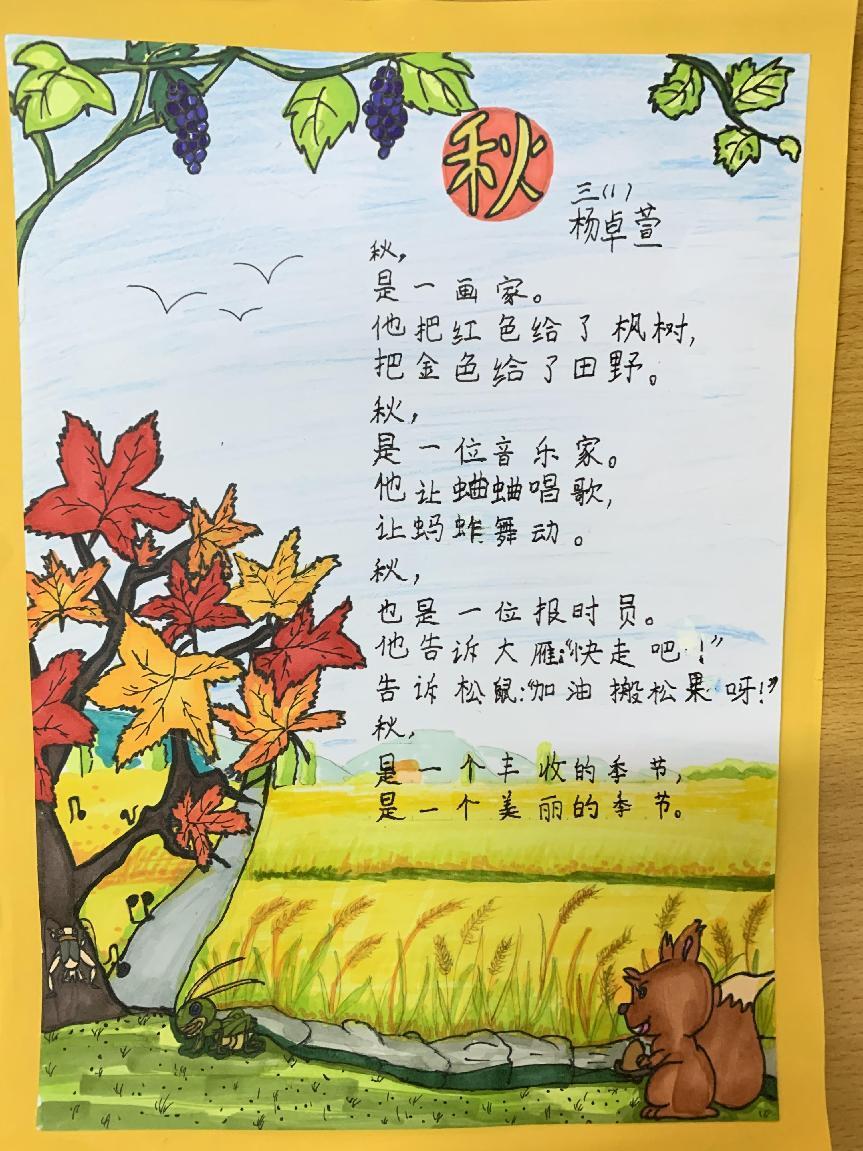 秋
三(1)
杨卓萱
秋，
是一画家。
他把红色给了枫树，
把金色给了田野。
秋，
是一位音乐家。
他让蛐蛐唱歌，
让蚂蚱舞动。
秋，
也是一位报时员。
他告诉大雁：“快走吧！”
告诉松鼠：“加油搬松果呀！”
秋，
是一个丰收的季节，
是一个美丽的季节。